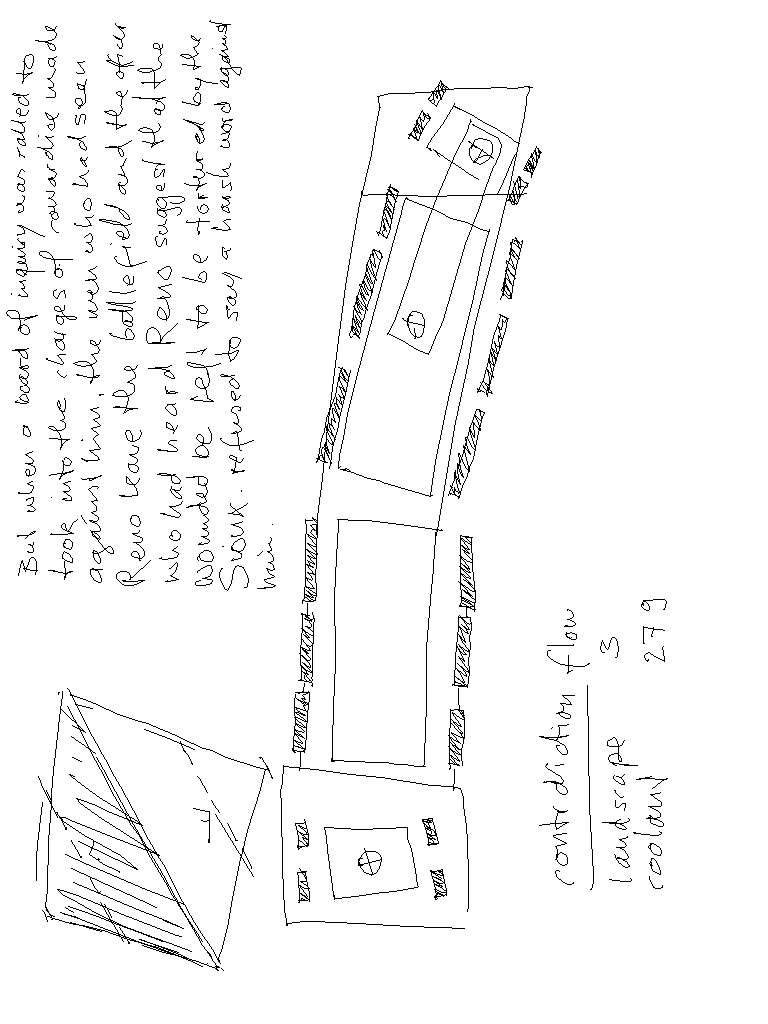 But when a board of inquiry was called to
look into the charges of cowardise made
against him, the men who had seen
Reno leave the battlefield and the officer
who had heard Reno suggest that the
wounded be left to be tortured by the
Sioux. refused to say a harsh word against
him.
contradiction flow
landscape 3
coolant 279